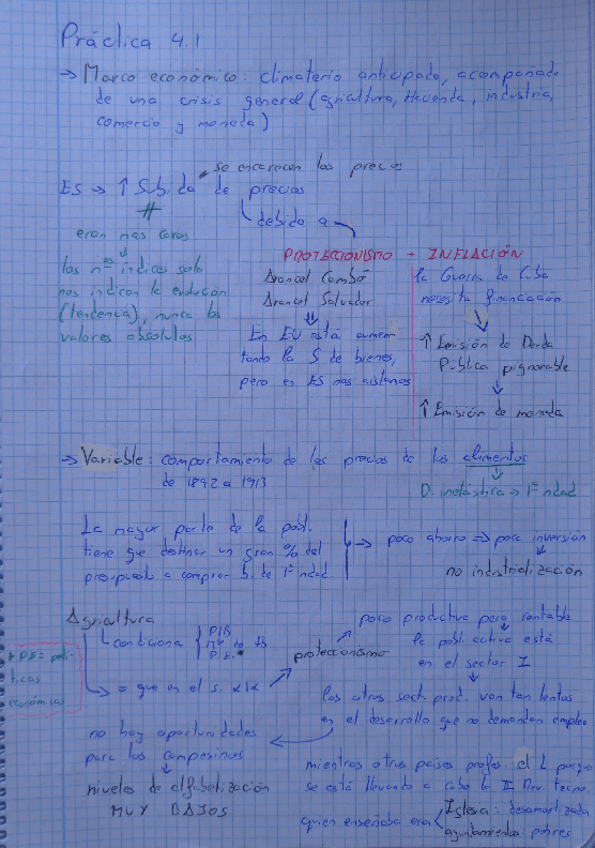 Práctica 4.1
→ Marco económico: climaterio anticipado, acompañado
de una crisis general (agricultura, Hacienda, industria,
comercio y moneda)
se encarecen los precios
ES → ↑ Subida de precios
debido a
eran más caros
los nºs índices solo
nos indican la evolución
(tendencia), nunca los
valores absolutos
PROTECCIONISMO + INFLACIÓN
Arancel Cambó
Arancel Salvador
En EU está aumen-
tando la S de bienes,
pero en ES nos aislamos
la Guerra de Cuba
necesita financiación
↑ Emisión de Deuda
Pública pignorable
↑ Emisión de moneda
→ Variable: comportamiento de los precios de los alimentos
de 1892 a 1913
D. inelástica → 1ª ndad
La mayor parte de la pobl.
tiene que destinar un gran % del
presupuesto a comprar b. de 1ª ndad
→ poco ahorro ⇒ poca inversión
no industrialización
Agricultura
condiciona
PIB
P.E.*
* P.E = polí-
ticas
económicas
→ = que en el s. XIX
proteccionismo
poco productiva pero rentable
la pobl. activa está
en el sector I
los otros sect. prod. van tan lentos
en el desarrollo que no demandan empleo
no hay oportunidades
para los campesinos
niveles de alfabetización
MUY BAJOS
mientras otros países profes. el L porque
se está llevando a cabo la II Rev. Tecno.
quien enseñaba era
Iglesia: desamortizada
ayuntamientos: pobres